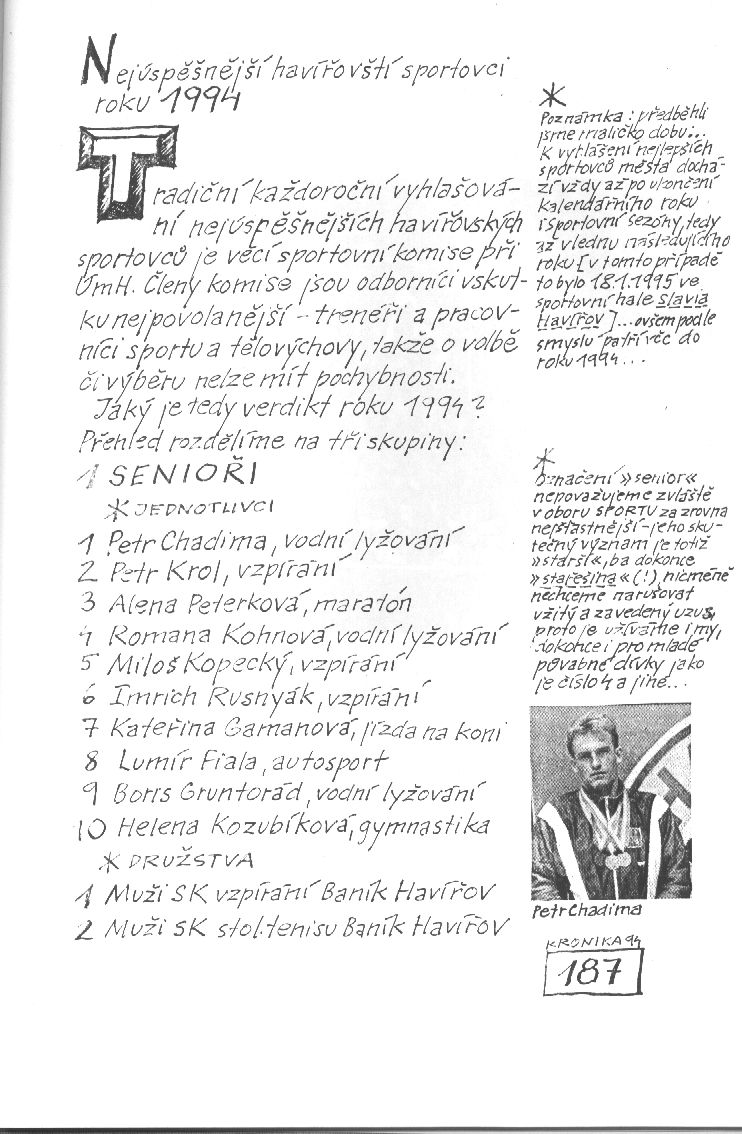 Nejúspěšnější havířovští sportovci
roku 1994
Tradiční každoroční vyhlašová-
ní nejúspěšnějších havířovských
sportovců je věcí sportovní komise při
ÚmH. Členy komise jsou odborníci vskut-
ku nejpovolanější - trenéři a pracov-
níci sportu a tělovýchovy, takže o volbě
či výběru nelze mít pochybnosti.
Jaký je tedy verdikt roku 1994?
Přehled rozdělíme na tři skupiny:
1 SENIOŘI
* JEDNOTLIVCI
1 Petr Chadima, vodní lyžování
2 Petr Krol, vzpírání
3 Alena Peterková, maratón
4 Romana Kohnová, vodní lyžování
5 Miloš Kopecký, vzpírání
6 Imrich Rusnyák, vzpírání
7 Kateřina Gamanová, jízda na koni
8 Lumír Fiala, autosport
9 Boris Gruntorád, vodní lyžování
10 Helena Kozubíková, gymnastika
* DRUŽSTVA
1 Muži SK vzpírání Baník Havířov
2 Muži SK stol.tenisu Baník Havířov
*
Poznámka: předběhli
jsme maličko dobu...
K vyhlášení nejlepších
sportovců města dochá-
zí vždy až po ukončení
kalendářního roku
i sportovní sezóny, tedy
až v lednu následujícího
roku [v tomto případě
to bylo 18.1.1995 ve
sportovní hale Slavia
Havířov]...ovšem podle
smyslu patří věc do
roku 1994...
*
Označení »senior«
nepovažujeme zvláště
v oboru SPORTU za zrovna
nejšťastnější - jeho sku-
tečný význam je totiž
»starší«, ba dokonce
»stařešina« (!), nicméně
nechceme narušovat
vžitý a zavedený uzus,
proto je užíváme i my,
dokonce i pro mladé
půvabné dívky jako
je číslo 4 a jiné...
Petr Chadima
KRONIKA 94
187